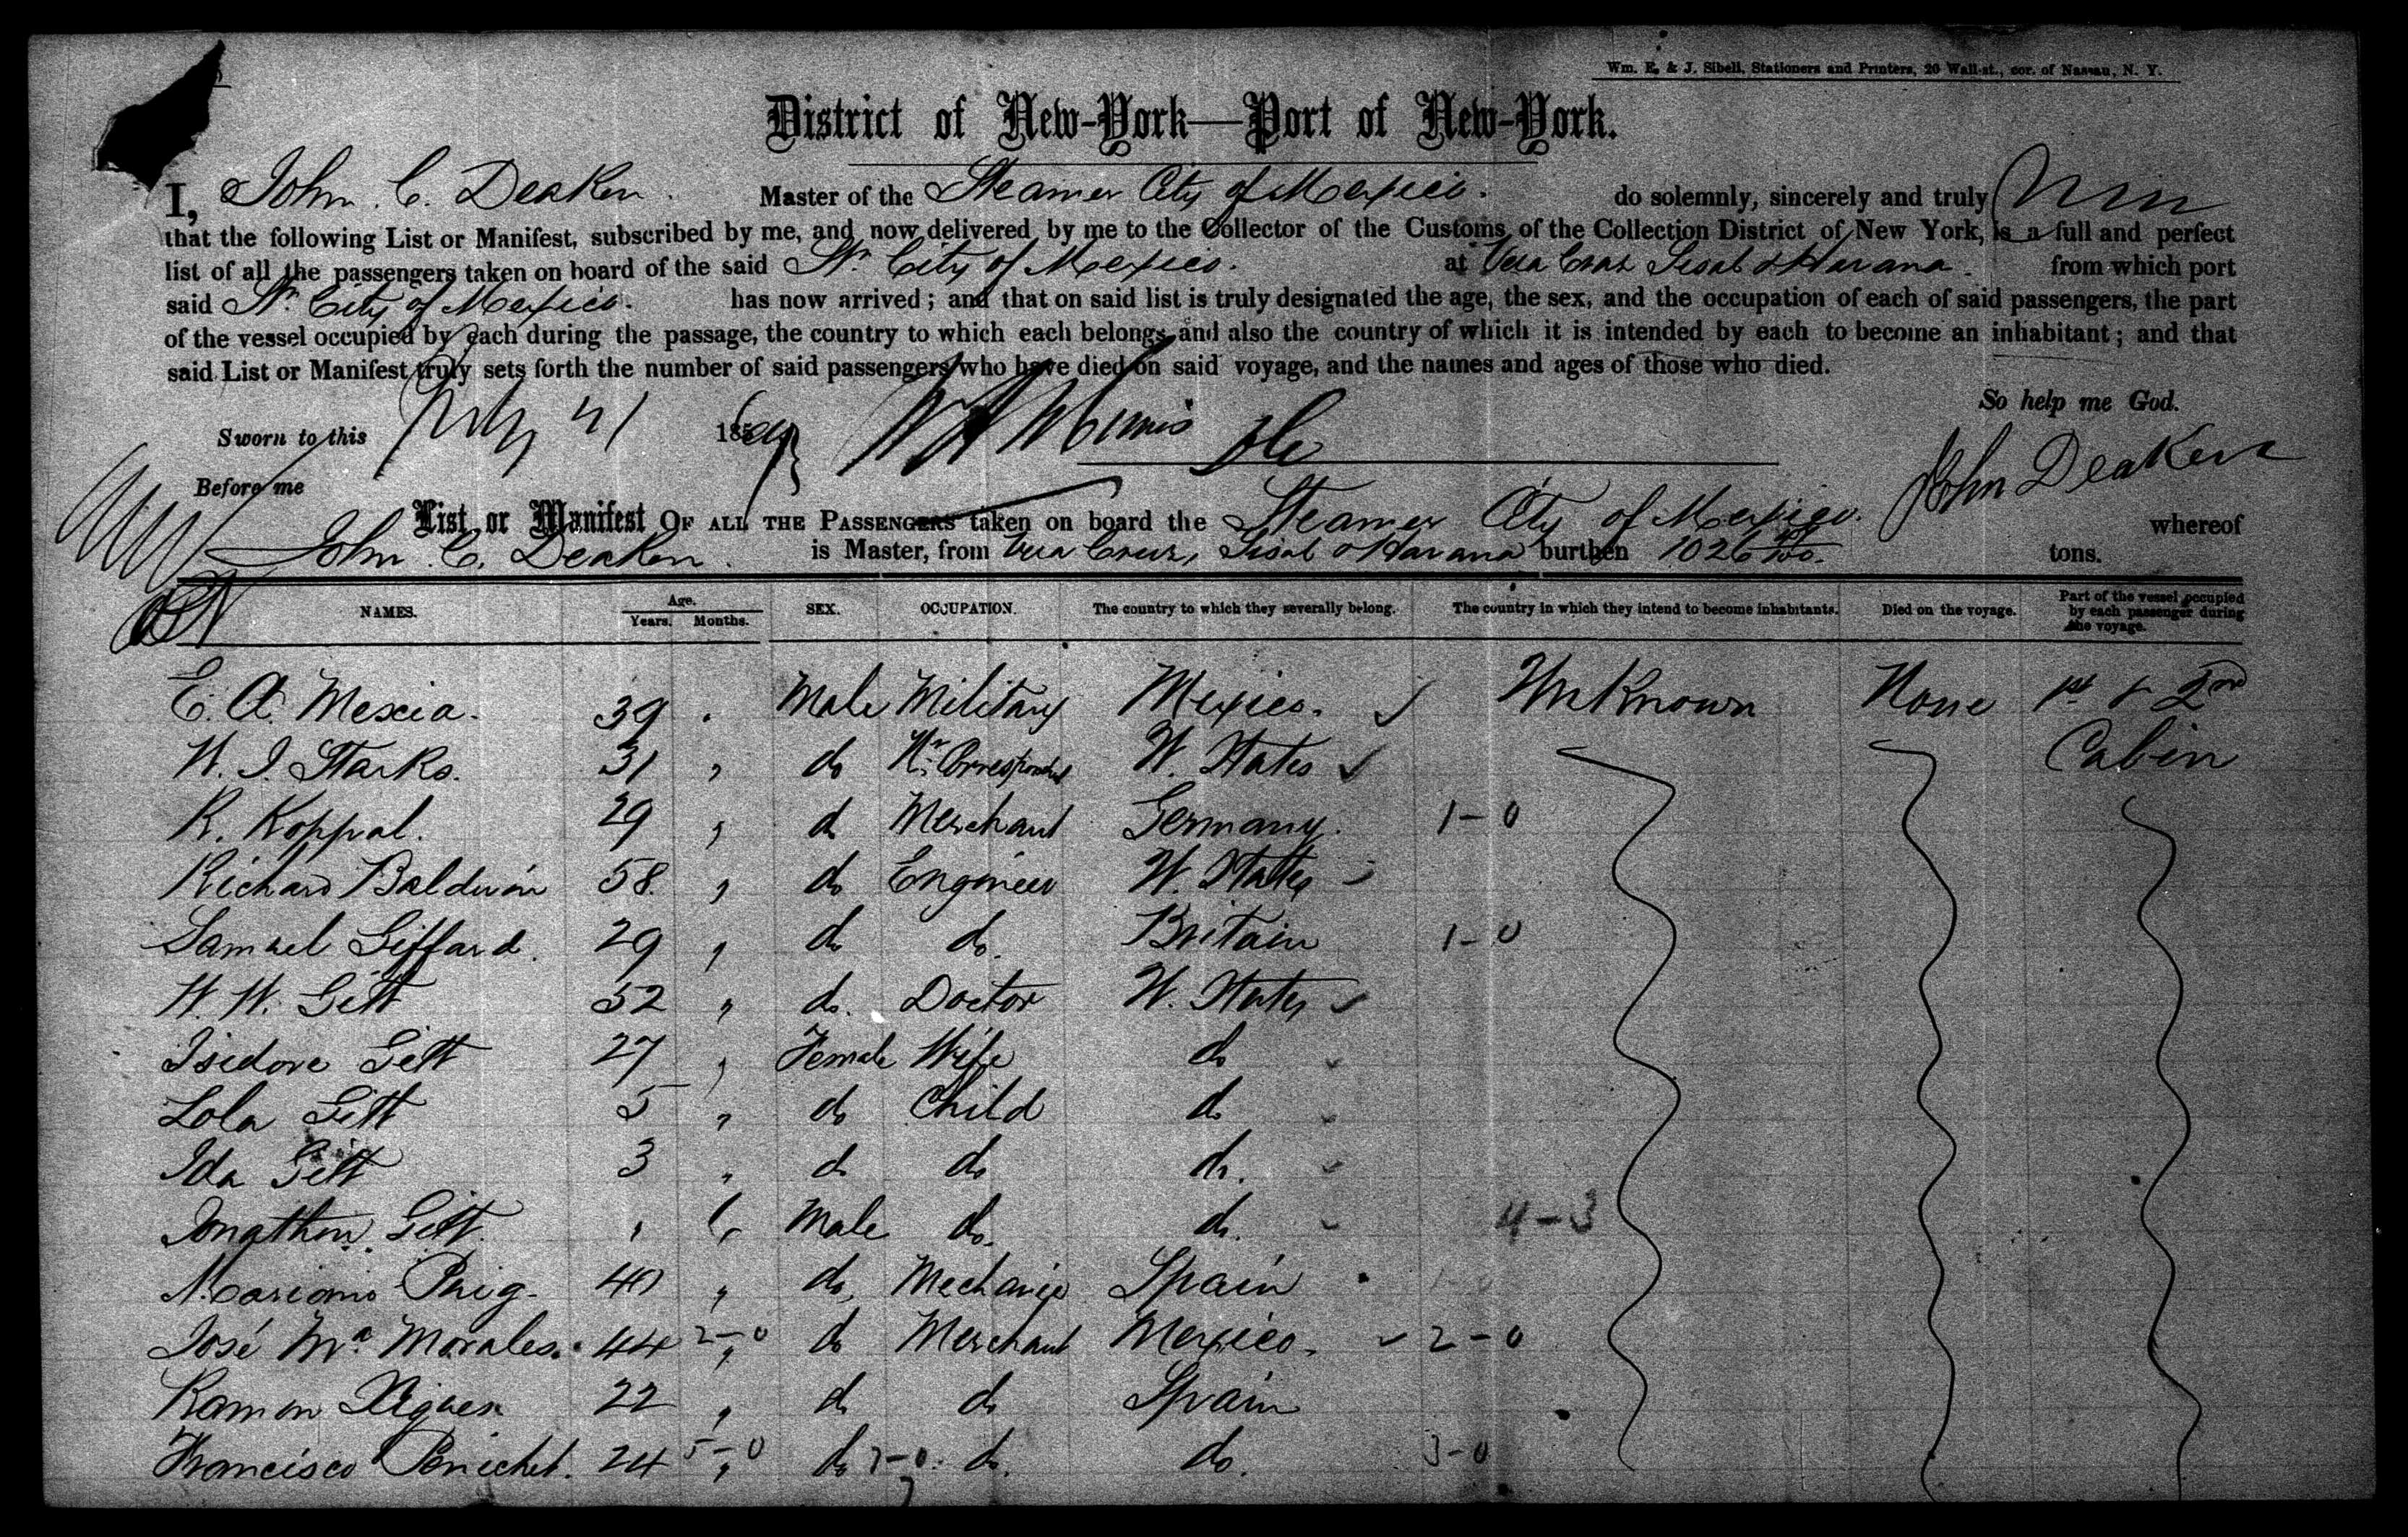 Wm. E. & J. Sibell, Stationers and Printers, 20 Wall-st., cor. of Nassau, N. Y.
District of New-York—Port of New-York.
I, John. C. Deaken. Master of the Steamer City of Mexico. do solemnly, sincerely and truly
that the following List or Manifest, subscribed by me, and now delivered by me to the Collector of the Customs of the Collection District of New York, is a full and perfect
list of all the passengers taken on board of the said Str City of Mexico. at Vera Cruz Sisal & Havana. from which port
said Str City of Mexico. has now arrived; and that on said list is truly designated the age, the sex, and the occupation of each of said passengers, the part
of the vessel occupied by each during the passage, the country to which each belongs, and also the country of which it is intended by each to become an inhabitant; and that
said List or Manifest truly sets forth the number of said passengers who have died on said voyage, and the names and ages of those who died.
So help me God.
Sworn to this 21 1869
John Deaken
Before me
List or Manifest OF ALL THE PASSENGERS taken on board the Steamer City of Mexico. whereof
John. C. Deaken. is Master, from Vera Cruz, Sisal & Havana burthen 1026 tons.
NAMES. Age. Years. Months. SEX. OCCUPATION. The country to which they severally belong. The country in which they intend to become inhabitants. Died on the voyage. Part of the vessel occupied by each passenger during the voyage.
E. A. Mexia. 39 Male Military Mexico. Unknown None 1st & 2nd
W. I. Starks. 31 " do Correspondent U. States Cabin
R. Koppal. 29 " do Merchant Germany. 1-0
Richard Baldwin 58. " do Engineer U. States
Samuel Giffard. 29 " do do. Britain 1-0
W. W. Gett 52 " do. Doctor U. States
Isidore Gett 27 " Female Wife do
Lola Gett 5 " do Child do
Ida Gett 3 " do do do.
Jonathon. Gett. " Male do. do. 4-3
Puig. 40 " do, Mechanic Spain 1-0
José Ma Morales. 44 2-0 " do Merchant Mexico. 2-0
Ramon 22 " do do Spain
Francisco Penichet. 24 5-0 " do do. do. 3-0